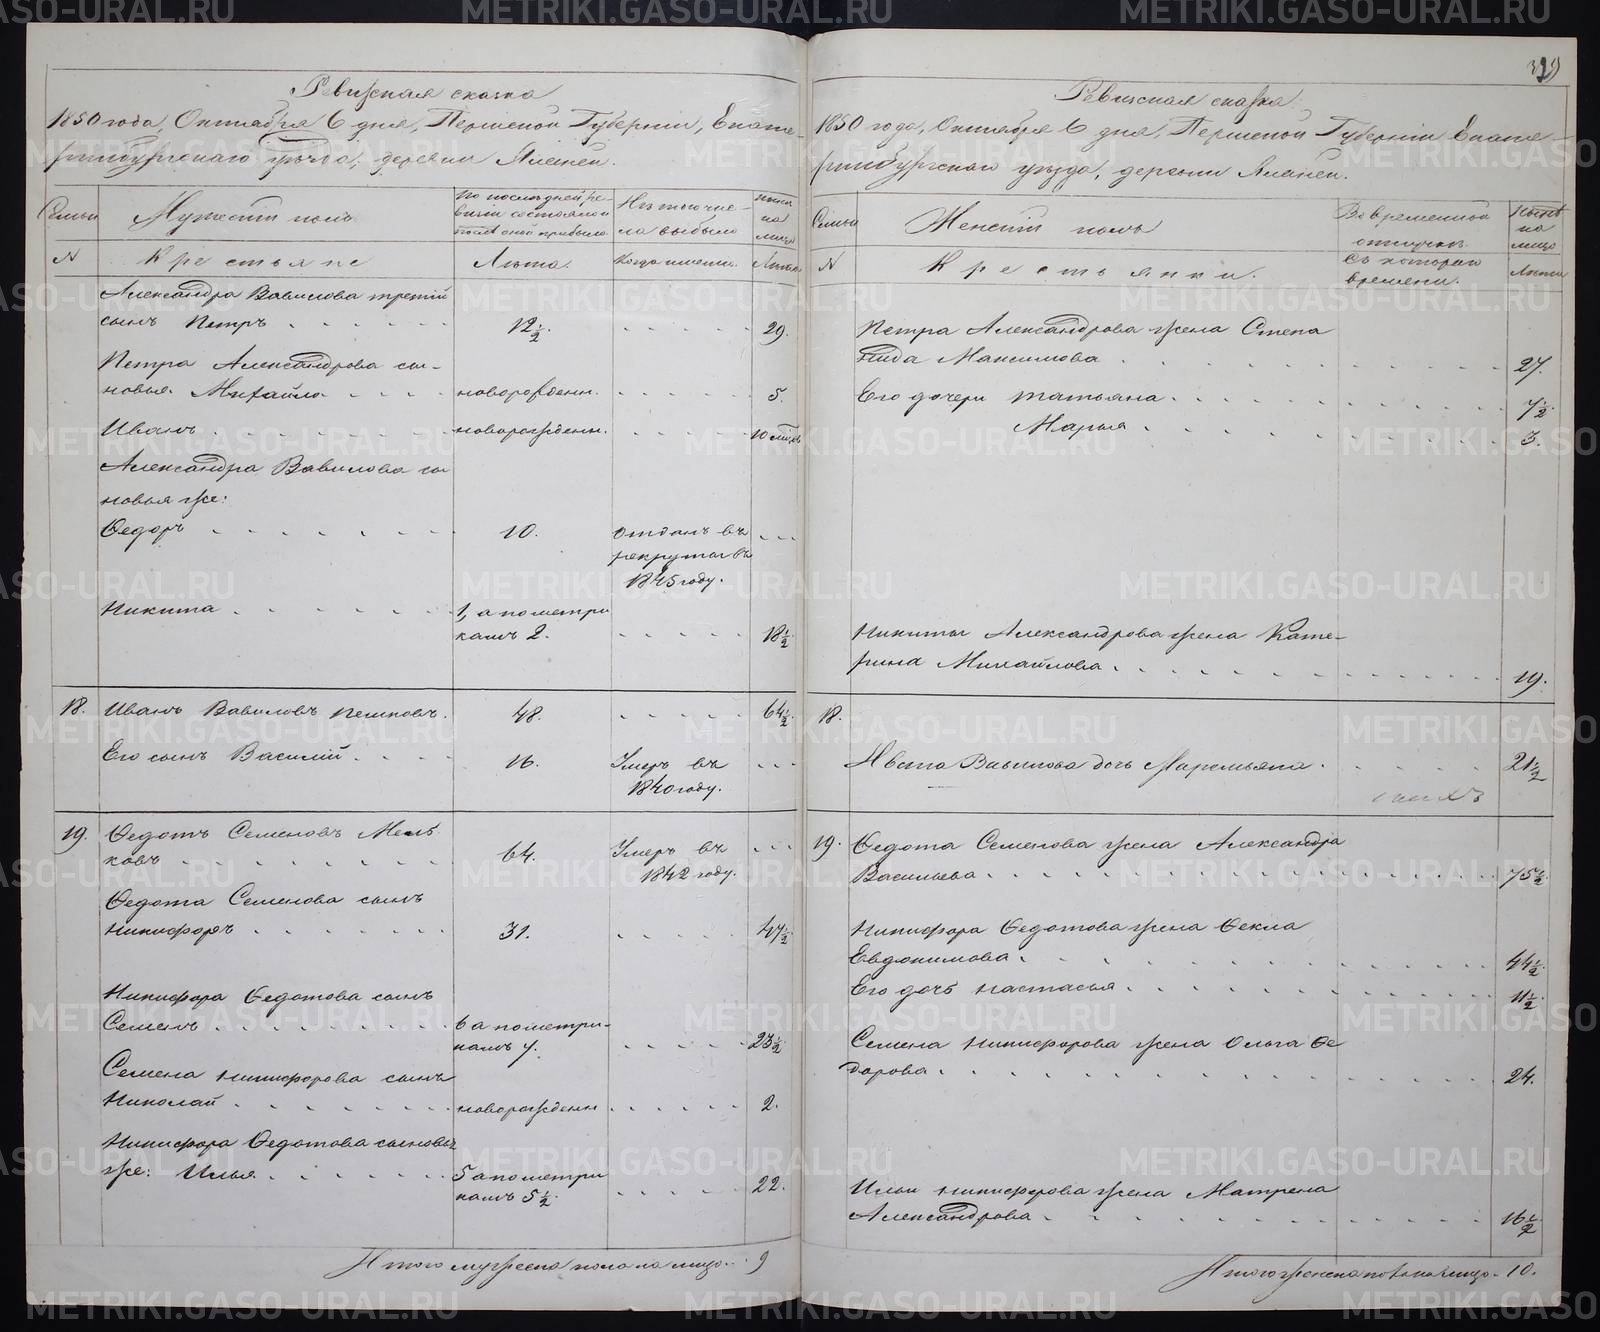 Ревизская сказка
1850 года, Октября 6 дня, Пермской Губернии, Екате-
ринбургскаго уезда, деревни Аяцкой.
Семьи
Мужеский полъ
По последней ре-
визии состояло и
после оной прибыло
Изъ того чис-
ла выбыло
Ныне
на
лицо
N
Крестьяне
Лета.
Когда именно.
Лета
Александра Вавилова третий
сынъ Петръ
12 1/2.
29.
Петра Александрова сы-
новья Михайло
новорожденн.
5.
Иванъ
новорожденн.
10 месяц.
Александра Вавилова сы
новья же:
Федоръ
10.
отданъ въ
рекруты въ
1845 году.
Никита
1, а по метри
камъ 2.
18 1/2
18.
Иванъ Вавиловъ Пешковъ.
48.
64 1/2
Его сынъ Василий
16.
Умеръ въ
1840 году.
19.
Федотъ Семеновъ Мель
ковъ
64.
Умеръ въ
1842 году.
Федота Семенова сынъ
Никифоръ
31.
47 1/2
Никифора Федотова сынъ
Семенъ
6 а по метри-
камъ 7.
23 1/2
Семена Никифорова сынъ
Николай
новорожденн
2.
Никифора Федотова сыновья
же: Илья
5 а по метри
камъ 5 1/2
22.
Итого мужеска пола на лицо 9
Ревизская сказка
1850 года, Октября 6 дня, Пермской Губернии Екате-
ринбургскаго уезда, деревни
Семьи
Женский полъ
Во временной
отлучке
Ныне
на
лицо
N
Крестьянки.
Съ котораго
времени.
Лета
Петра Александрова жена Степа
нида Максимова
27.
Его дочери Татьяна
7 1/2
Марья
3.
Никиты Александрова жена Кате-
рина Михайлова
19.
18.
Ивана Вавилова дочь Маремьяна
21 1/2
19.
Федота Семенова жена Александра
Васильева
75 1/2
Никифора Федотова жена Фекла
Евдокимова
44 1/2
Его дочь Настасья
11 1/2
Семена Никифорова жена Ольга Фе
дорова
24.
Ильи Никифорова жена Матрена
Александрова
16 1/2
Итого женска пола на лицо 10.
METRIKI.GASO-URAL.RU